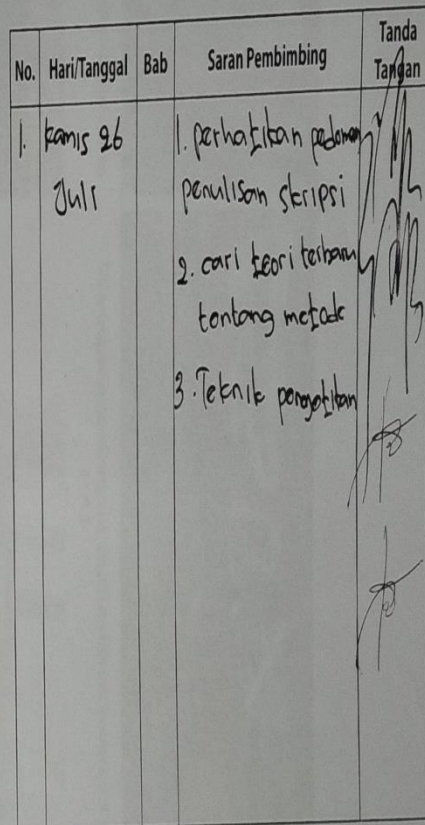 No. Hari/Tanggal Bab Saran Pembimbing Tanda Tangan
1. Kamis 26 Juli
1. perhatikan pedoman
penulisan skripsi
2. cari teori terbaru
tentang metode
3. Teknik pengetikan